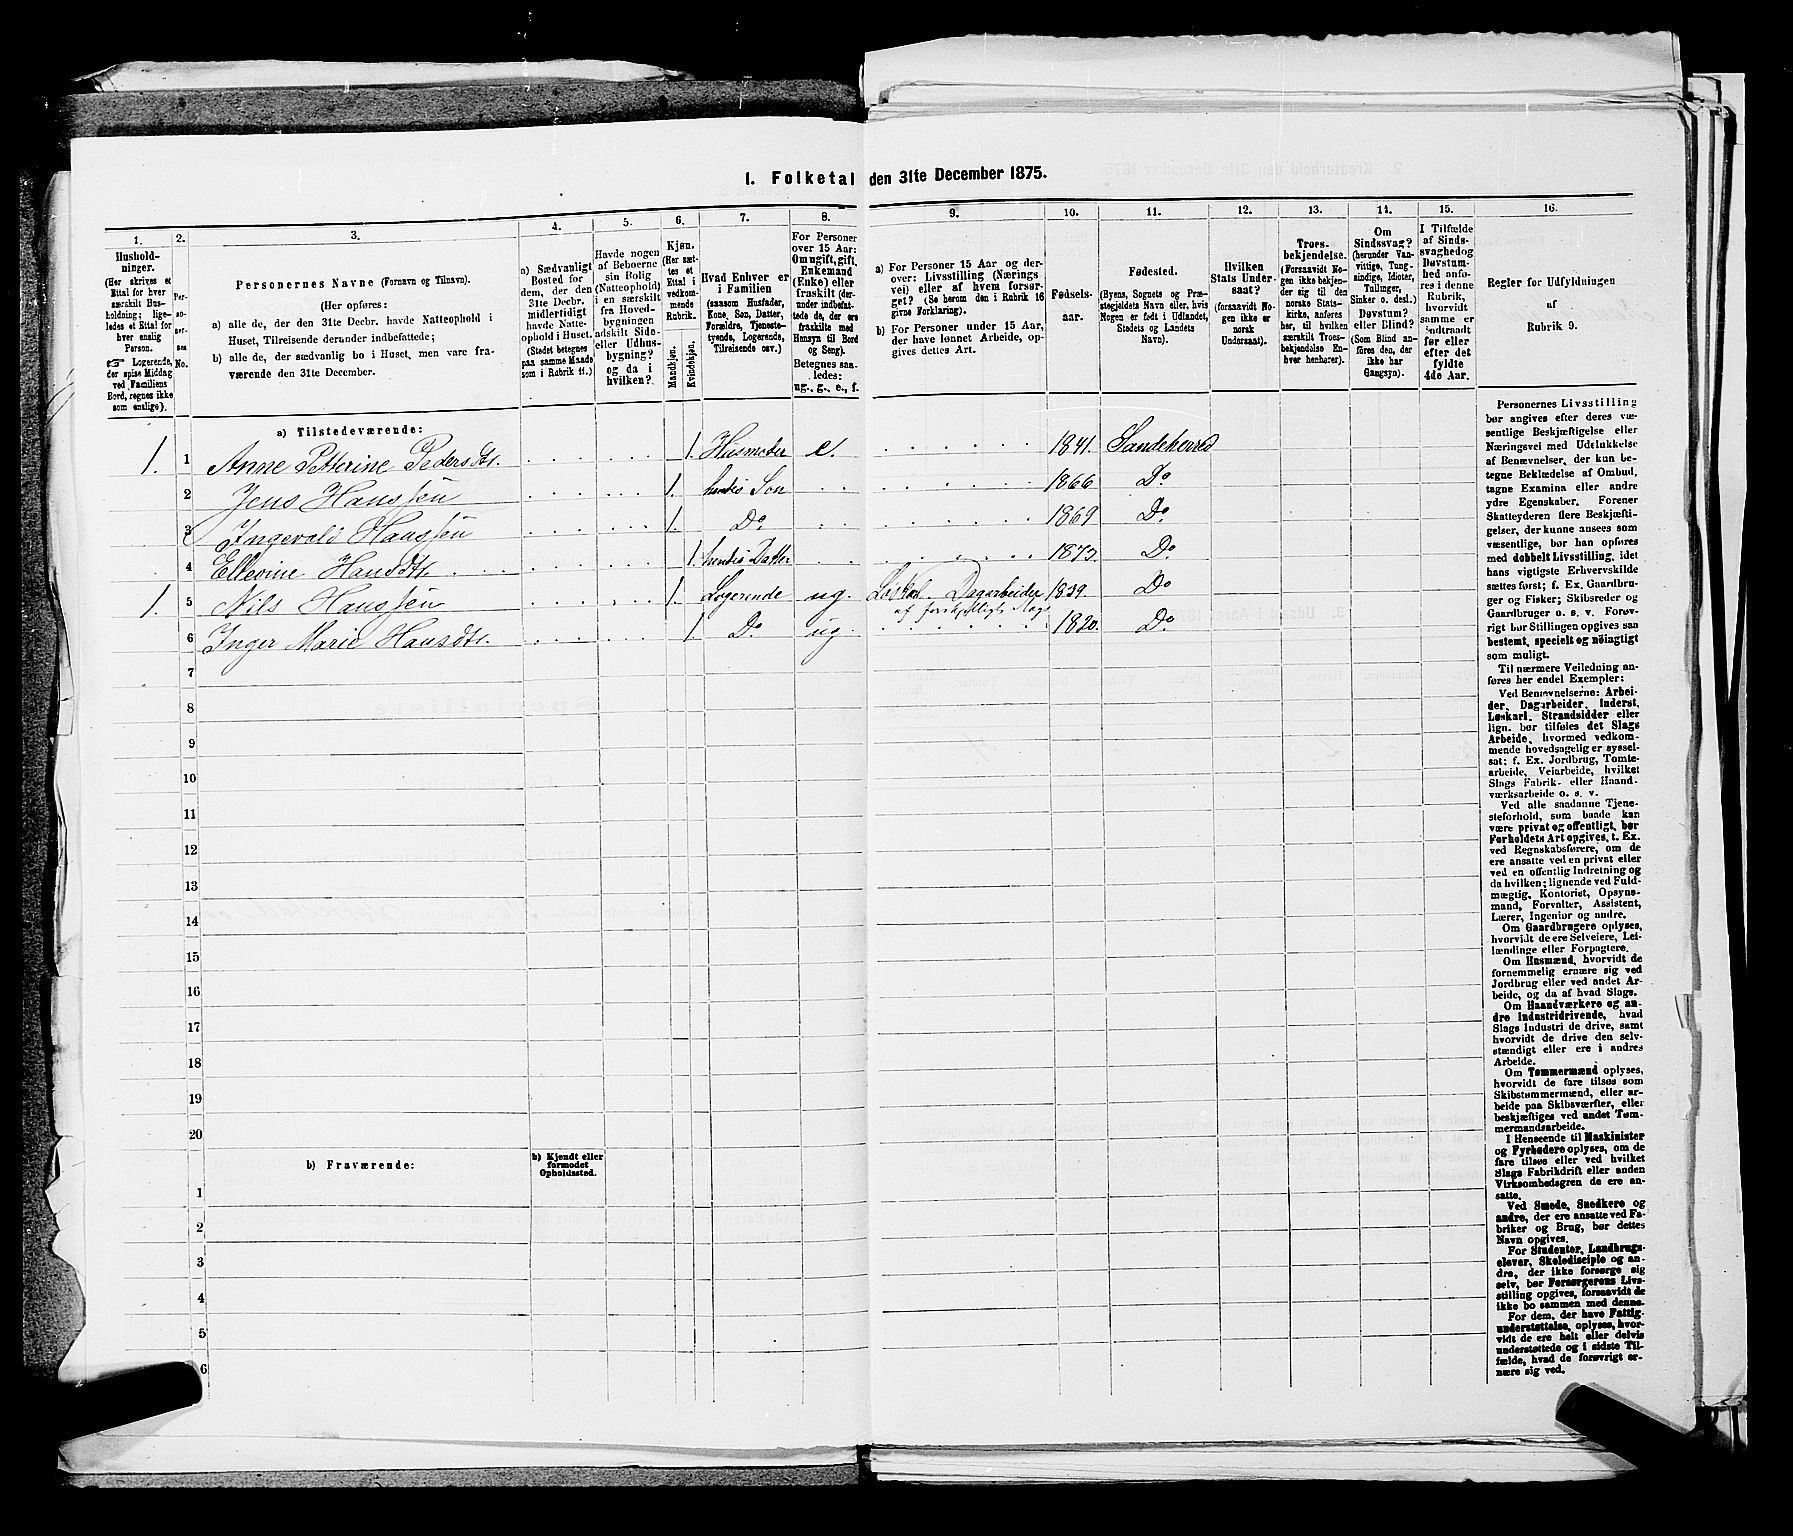 I. Folketal den 31te December 1875.
1.
Hushold-
ninger.
(Her skrives et
Ettal for hver
særskilt Hus-
holdning; lige-
ledes et Ettal for
hver enslig
Person.
☞ Logerende,
der spise Middag
ved Familiens
Bord, regnes ikke
som enslige).
2.
Per-
so-
ner-
nes
No.
3.
Personernes Navne (Fornavn og Tilnavn).
(Her opføres:
a) alle de, der den 31te Decbr. havde Natteophold i
Huset, Tilreisende derunder indbefattede;
b) alle de, der sædvanlig bo i Huset, men vare fra-
værende den 31te December.
4.
a) Sædvanligt
Bosted for
dem, der den
31te Decbr.
midlertidigt
havde Natte-
ophold i Huset.
(Stedet betegnes
paa samme Maade
som i Rubrik 11.)
5.
Havde nogen
af Beboerne
sin Bolig
(Natteophold)
i en særskilt
fra Hoved-
bygningen
adskilt Side-
eller Udhus-
bygning?
og da i
hvilken?
6.
Kjøn.
(Her sæt-
tes et
Ettal i
vedkom-
mende
Rubrik.
Mandkjøn.
Kvindekjøn.
7.
Hvad Enhver er
i Familien
(saasom Husfader,
Kone, Søn, Datter,
Forældre, Tjeneste-
tyende, Logerende,
Tilreisende osv.)
8.
For Personer
over 15 Aar:
Om ugift, gift,
Enkemand
(Enke) eller
fraskilt (der-
under indbefat-
tede de, der ere
fraskilte med
Hensyn til Bord
og Seng).
Betegnes saa-
ledes:
ug., g., e., f.
9.
a) For Personer 15 Aar og der-
over: Livsstilling (Nærings-
vei) eller af hvem forsør-
get? (Se herom den i Rubrik 16
givne Forklaring).
b) For Personer under 15 Aar,
der have lønnet Arbeide, op-
gives dettes Art.
10.
Fødsels-
aar.
11.
Fødested.
(Byens, Sognets og Præ-
stegjeldets Navn eller, hvis
Nogen er født i Udlandet,
Stedets og Landets
Navn).
12.
Hvilken
Stats Under-
saat?
(forsaavidt No-
gen ikke er
norsk
Undersaat).
13.
Troes-
bekjendelse.
(Forsaavidt No-
gen ikke bekjen-
der sig til den
norske Stats-
kirke, anføres
her, til hvilken
særskilt Troes-
bekjendelse En-
hver henhører).
14.
Om
Sindssvag?
(herunder Van-
vittige, Tung-
sindige, Idioter,
Tullinger,
Sinker o. desl.)
Døvstum?
eller Blind?
(Som Blind an-
føres den, der
ikke har
Gangsyn).
15.
I Tilfælde
af Sinds-
svaghed og
Døvstum-
hed anfø-
res i denne
Rubrik,
hvorvidt
samme er
indtraadt
før eller
efter det
fyldte
4de Aar.
16.
Regler for Udfyldningen
af
Rubrik 9.
a) Tilstedeværende:
1. 1 Anne Petterine Pedersdt. 1. Husmoder e. 1841. Sandeherred
2 Jens Hanssen 1. hendes Søn 1866 Do
3 Ingevald Hanssen 1. Do. 1869 Do.
4 Ellevine Hansdt. 1. hendes Datter 1873. Do.
1. 5 Nils Hanssen 1. Logerende ug. Løskarl. Dagarbeider 1839 Do
af forskjelligt Slags
6 Inger Marie Hansdt. 1. Do. ug. 1820. Do.
7
8
9
10
11
12
13
14
15
16
17
18
19
20
b) Fraværende:
b) Kjendt eller
formodet
Opholdssted.
1
2
3
4
5
6
Personernes Livsstilling
bør angives efter deres væ-
sentlige Beskjæftigelse eller
Næringsvei med Udelukkelse
af Benævnelser, der kun be-
tegne Beklædelse af Ombud,
tagne Examina eller andre
ydre Egenskaber. Forener
Skatteyderen flere Beskjæfti-
gelser, der kunne ansees som
væsentlige, bør han opføres
med dobbelt Livsstilling, idet
hans vigtigste Erhvervskilde
sættes først; f. Ex. Gaardbru-
ger og Fisker; Skibsreder og
Gaardbruger o. s. v. Forøv-
rigt bør Stillingen opgives saa
bestemt, specielt og nøiagtigt
som muligt.
Til nærmere Veiledning an-
føres her endel Exempler:
Ved Benævnelserne: Arbei-
der, Dagarbeider, Inderst,
Løskarl, Strandsidder eller
lign. bør tilføies det Slags
Arbeide, hvormed vedkom-
mende hovedsagelig er syssel-
sat; f. Ex. Jordbrug, Tomte-
arbeide, Veiarbeide, hvilket
Slags Fabrik- eller Haand-
værksarbeide o. s. v.
Ved alle saadanne Tjene-
steforhold, som baade kan
være privat og offentligt, bør
Forholdets Art opgives, t. Ex.
ved Regnskabsførere, om de
ere ansatte ved en privat eller
ved en offentlig Indretning og
da hvilken; lignende ved Fuld-
mægtig, Kontorist, Opsyns-
mand, Forvalter, Assistent,
Lærer, Ingeniør og andre.
Om Gaardbrugere oplyses,
hvorvidt de ere Selveiere, Lei-
lændinge eller Forpagtere.
Om Husmænd, hvorvidt de
fornemmelig ernære sig ved
Jordbrug eller ved andet Ar-
beide, og da af hvad Slags.
Om Haandværkere og an-
dre Industridrivende, hvad
Slags Industri de drive, samt
hvorvidt de drive den selv-
stændigt eller ere i andres
Arbeide.
Om Tømmermænd oplyses,
hvorvidt de fare tilsøs som
Skibstømmermænd, eller ar-
beide paa Skibsværfter, eller
beskjæftiges ved andet Tøm-
mermandsarbeide.
I Henseende til Maskinister
og Fyrbødere oplyses, om de
fare tilsøs eller ved hvilket
Slags Fabrikdrift eller anden
Virksomhedsgren de ere an-
satte.
Ved Smede, Snedkere og
andre, der ere ansatte ved Fa-
briker og Brug, bør dettes
Navn opgives.
For Studenter, Landbrugs-
elever, Skoledisciple og an-
dre, der ikke forsørge sig
selv, bør Forsørgerens Livs-
stilling opgives, forsaavidt de
ikke bo sammen med denne.
For dem, der have Fattig-
understøttelse, oplyses, hvor-
vidt de ere helt eller delvis
understøttede og i sidste Til-
fælde, hvad de forøvrigt er-
nære sig ved.